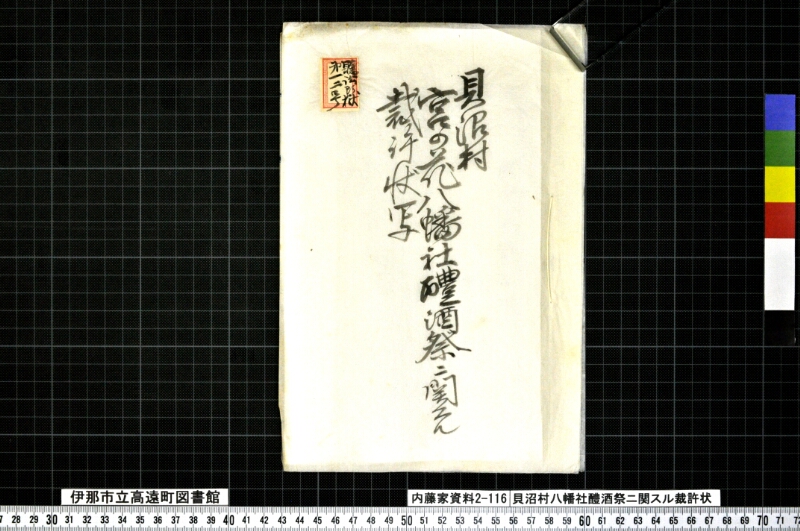 貝沼村
宮の花八幡社醴酒祭ニ関する
裁許状写
伊那市立高遠町図書館
内藤家資料2-116
貝沼村八幡社醴酒祭ニ関スル裁許状
28 29 30 31 32 33 34 35 36 37 38 39 40 41 42 43 44 45 46 47 48 49 50 51 52 53 54 55 56 57 58 59 60 61 62 63 64 65 66 67 68 69 70 71